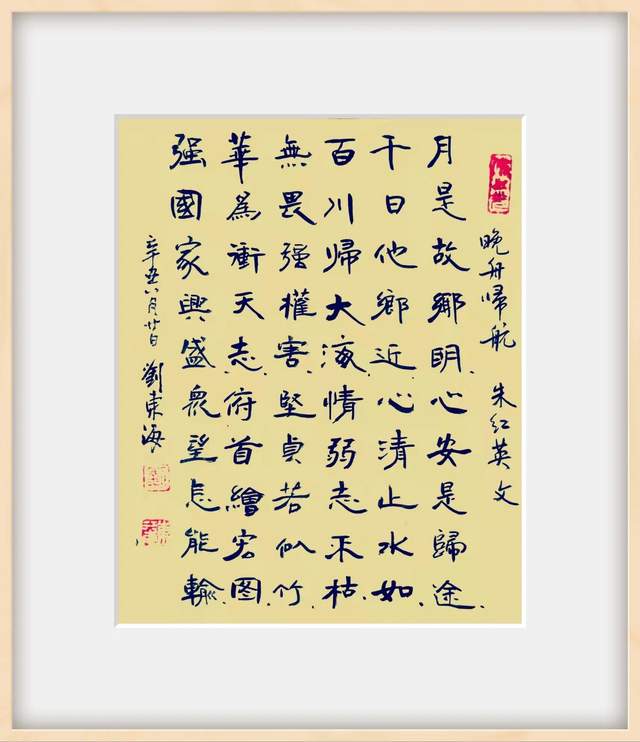 晚舟歸航 朱红英文
月是故鄉明.心安是歸途.
千日他鄉近.心清止水如.
百川歸大海.情弱志不枯.
無畏强權害.堅貞若似竹.
華為衝天志.府首繪宏图.
强國家興盛衆望怎能輸.
辛丑八月廿日 劉東海